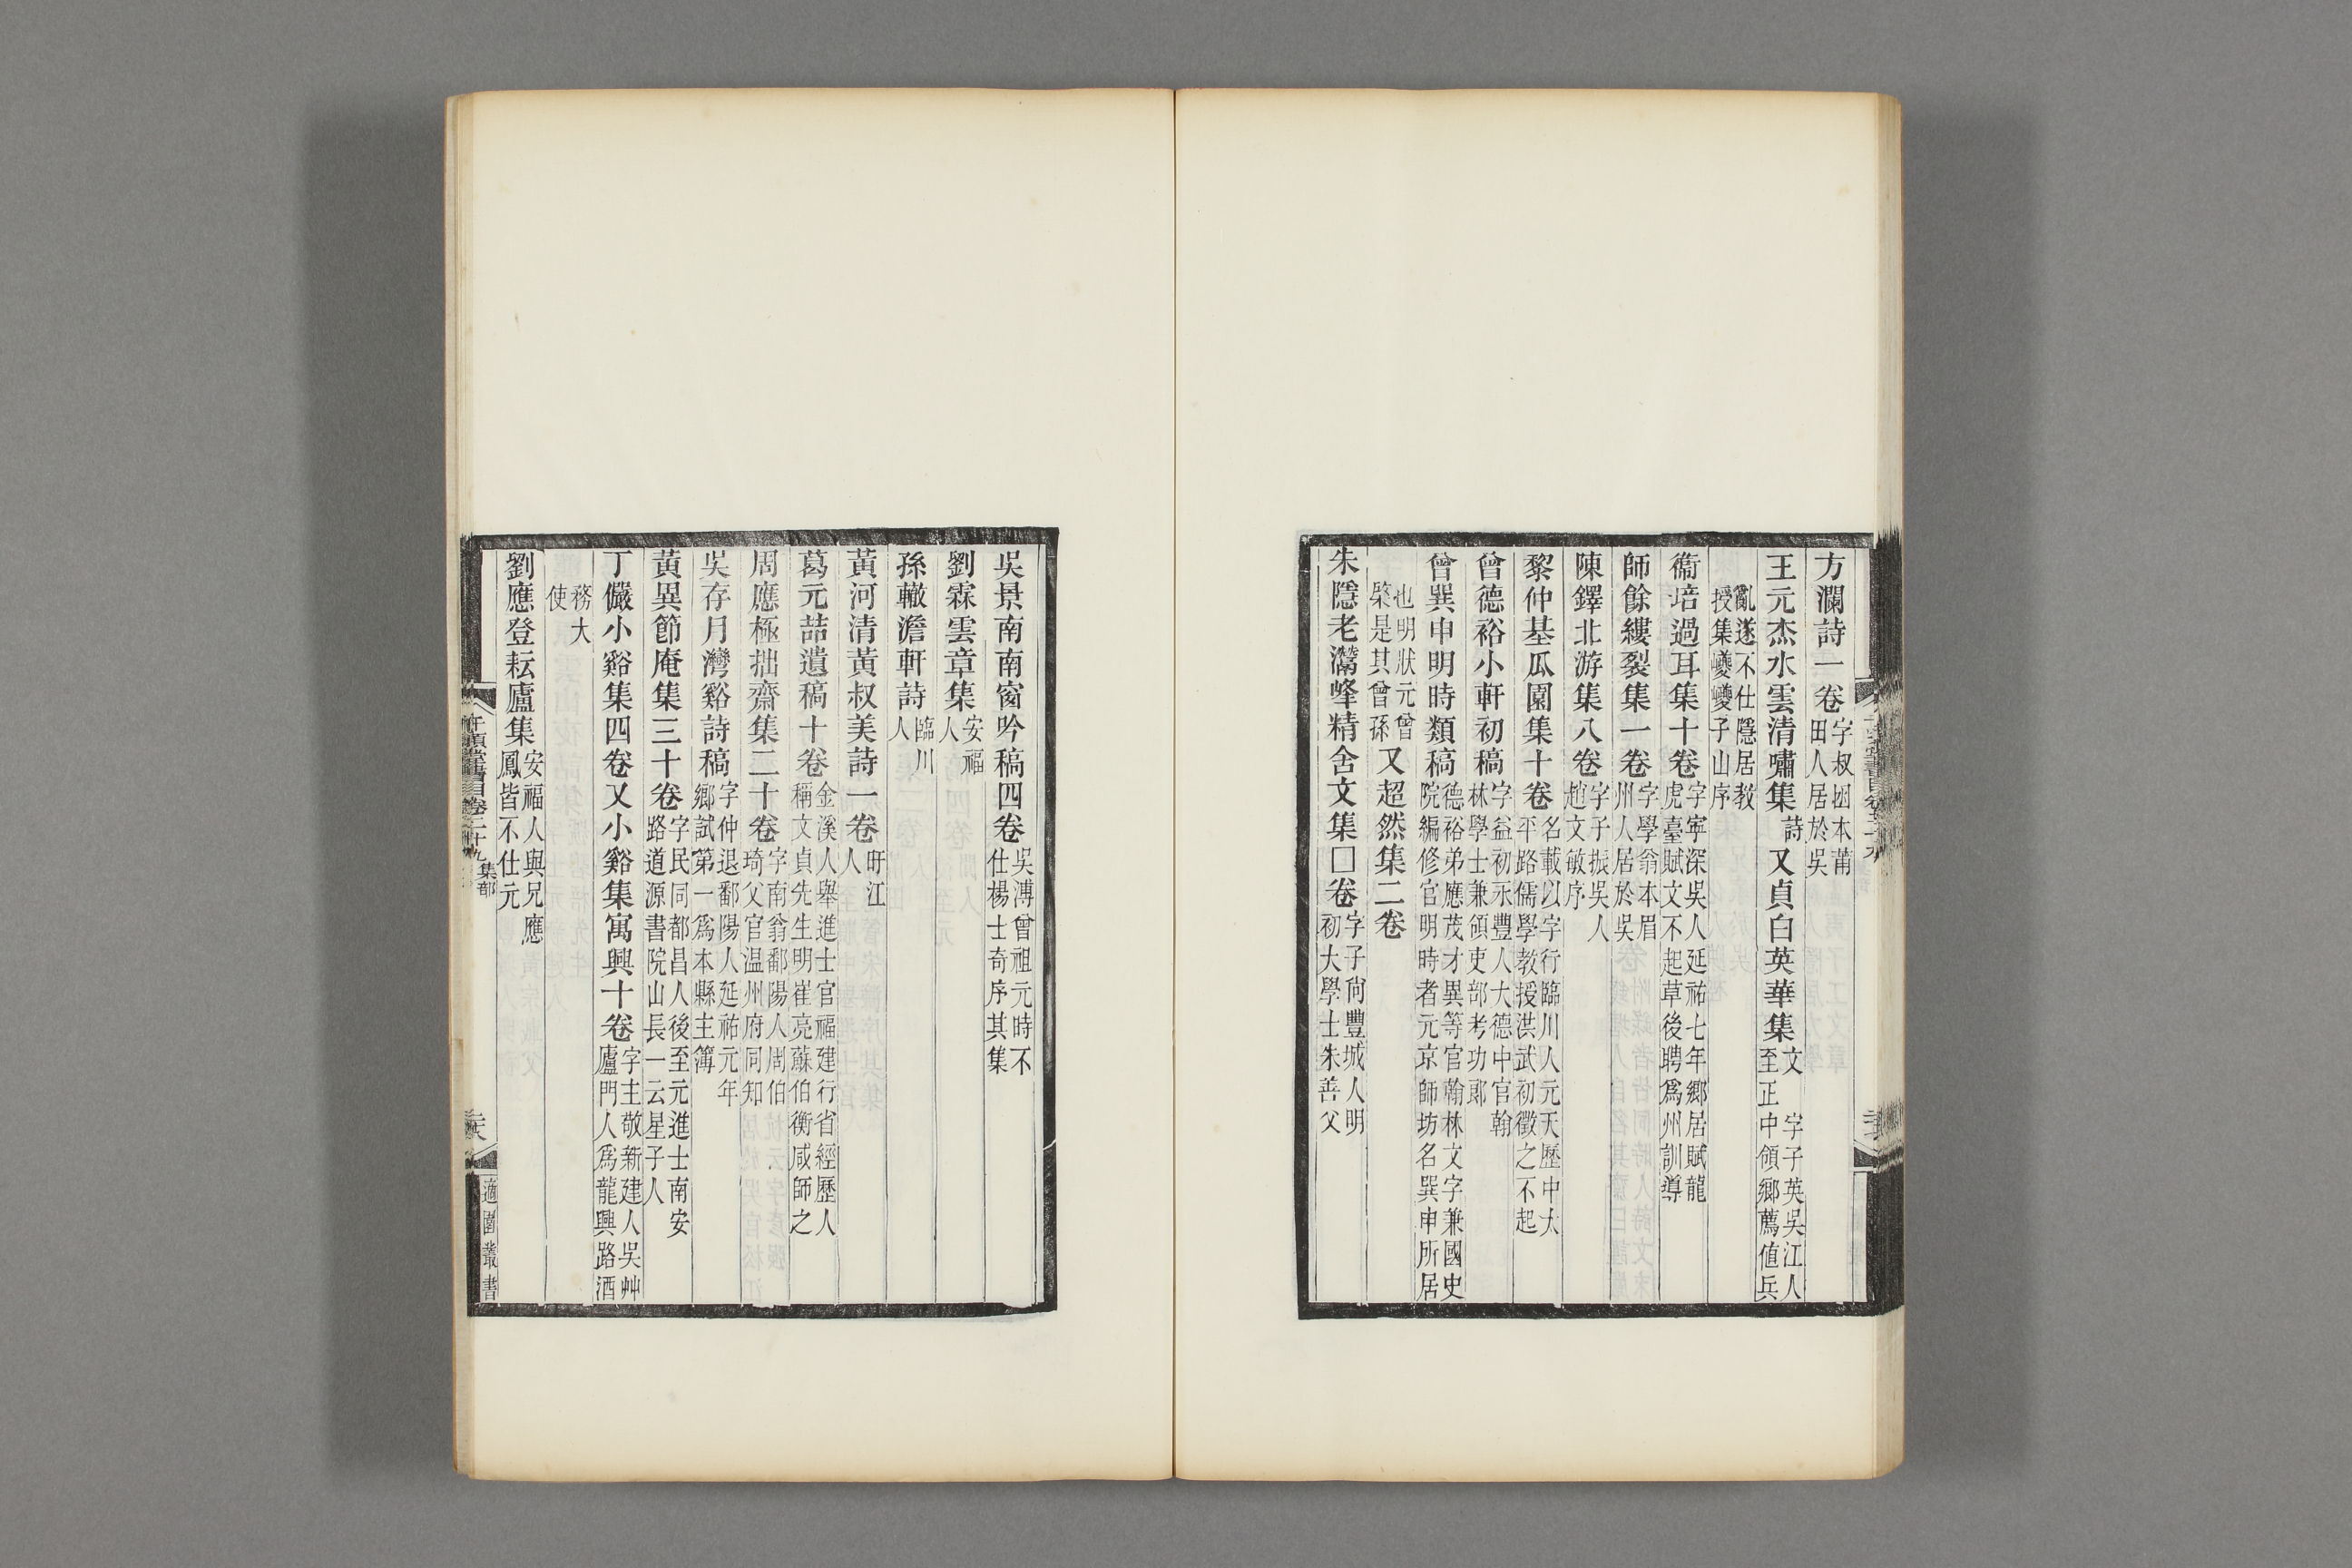 方瀾詩一卷字叔困本莆田人居於吳
王元杰水雲清嘯集詩又貞白英華集文字子英吳江人至正中領鄉薦值兵
亂遂不仕隱居教授集夔夔子山序
衞培過耳集十卷字寧深吳人延祐七年鄉居賦龍虎臺賦文不起草後聘爲州訓導
師餘縷裂集一卷字學翁本眉州人居於吳
陳鐸北游集八卷字子振吳人趙文敏序
黎仲基瓜園集十卷名載以字行臨川人元天歷中太平路儒學教授洪武初徵之不起
曾德裕小軒初稿字益初永豐人大德中官翰林學士兼領吏部考功郎
曾巽申明時類稿德裕弟應茂才異等官翰林文字兼國史院編修官明時者元京師坊名巽申所居
也明狀元曾棨是其曾孫又超然集二卷
朱隱老灊峰精舍文集□卷字子尙豐城人明初大學士朱善父
吳景南南窗吟稿四卷吳溥曾祖元時不仕楊士奇序其集
劉霖雲章集安福人
孫轍澹軒詩臨川人
黃河清黃叔美詩一卷旴江人
葛元喆遺稿十卷金溪人舉進士官福建行省經歷人稱文貞先生明崔亮蘇伯衡咸師之
周應極拙齋集二十卷字南翁鄱陽人周伯琦父官温州府同知
吳存月灣谿詩稿字仲退鄱陽人延祐元年鄉試第一爲本縣主簿
黃異節庵集三十卷字民同都昌人後至元進士南安路道源書院山長一云星子人
丁儼小谿集四卷又小谿集寓興十卷字主敬新建人吳艸廬門人爲龍興路酒
務大使
劉應登耘廬集安福人與兄應鳳皆不仕元
千頃堂書目卷二十九 集部
適園叢書